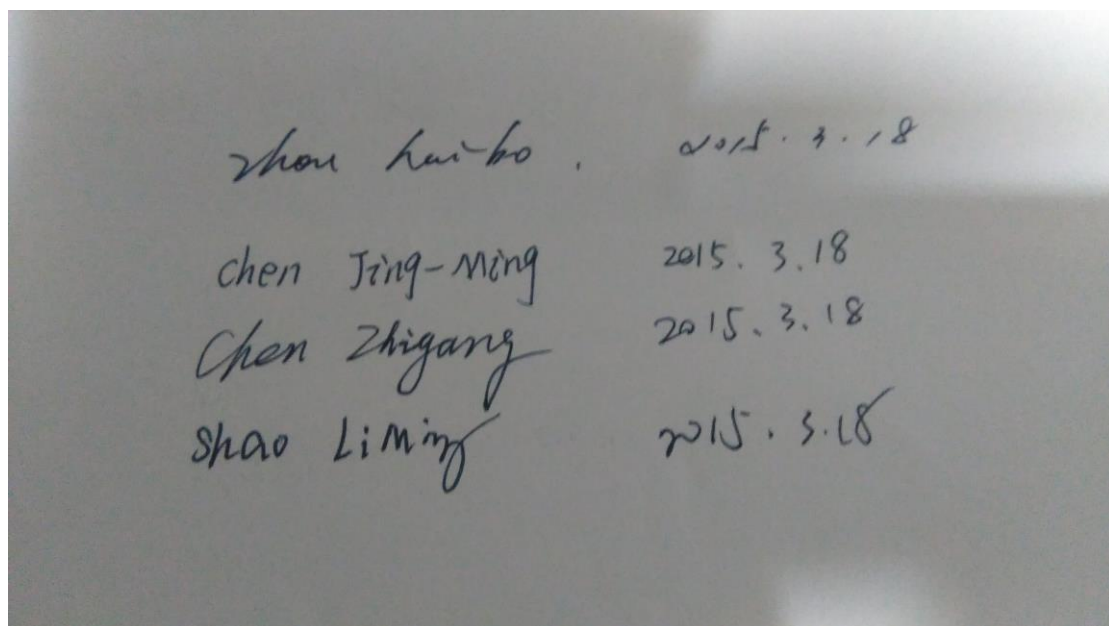 Zhou hai-bo. 2015.3.18
Chen Jing-Ming 2015.3.18
Chen Zhigang 2015.3.18
Shao LiMing 2015.3.18